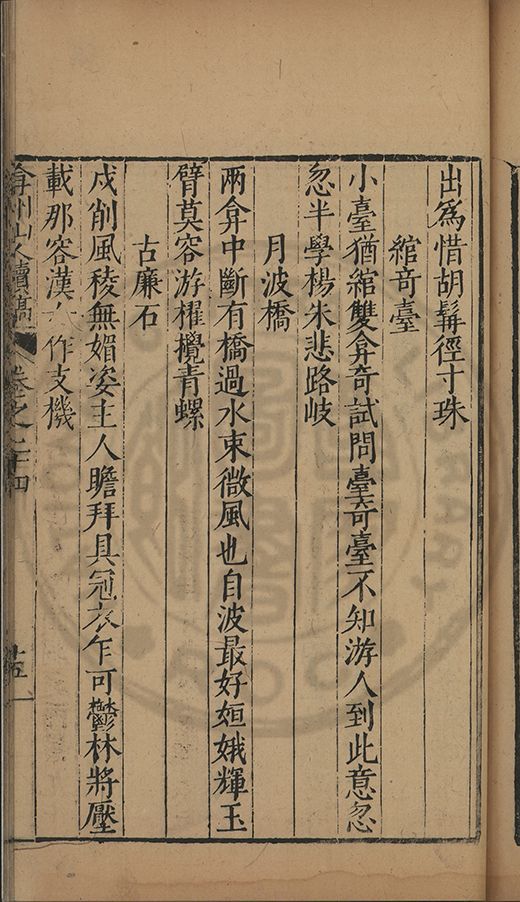 出為惜胡髯徑寸珠
綰奇臺
小臺猶綰雙弇奇試問臺奇臺不知游人到此意忽
忽半學楊朱悲路岐
月波橋
兩弇中斷有橋過水束微風也自波最好姮娥輝玉
臂莫容游櫂攪青螺
古廉石
戍削風稜無媚姿主人瞻拜具冠衣乍可鬱林將壓
載那容漢作支機
弇州山人續稿 卷之二十四 十五